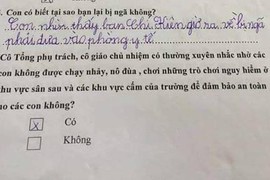 . Con có biết tại sao bạn lại bị ngã không?
Con nhìn thấy bạn Chí Kiên giơ ra, về bị ngã
phải đưa vào phòng y tế
Cô Tổng phụ trách, cô giáo chủ nhiệm có thường xuyên nhắc nhở các
con không được chạy nhảy, nô đùa , chơi những trò chơi nguy hiểm ở
khu vực sân sau và các khu vực cấm của trường để đảm bảo an toàn
ho các con không?
x Có
Không